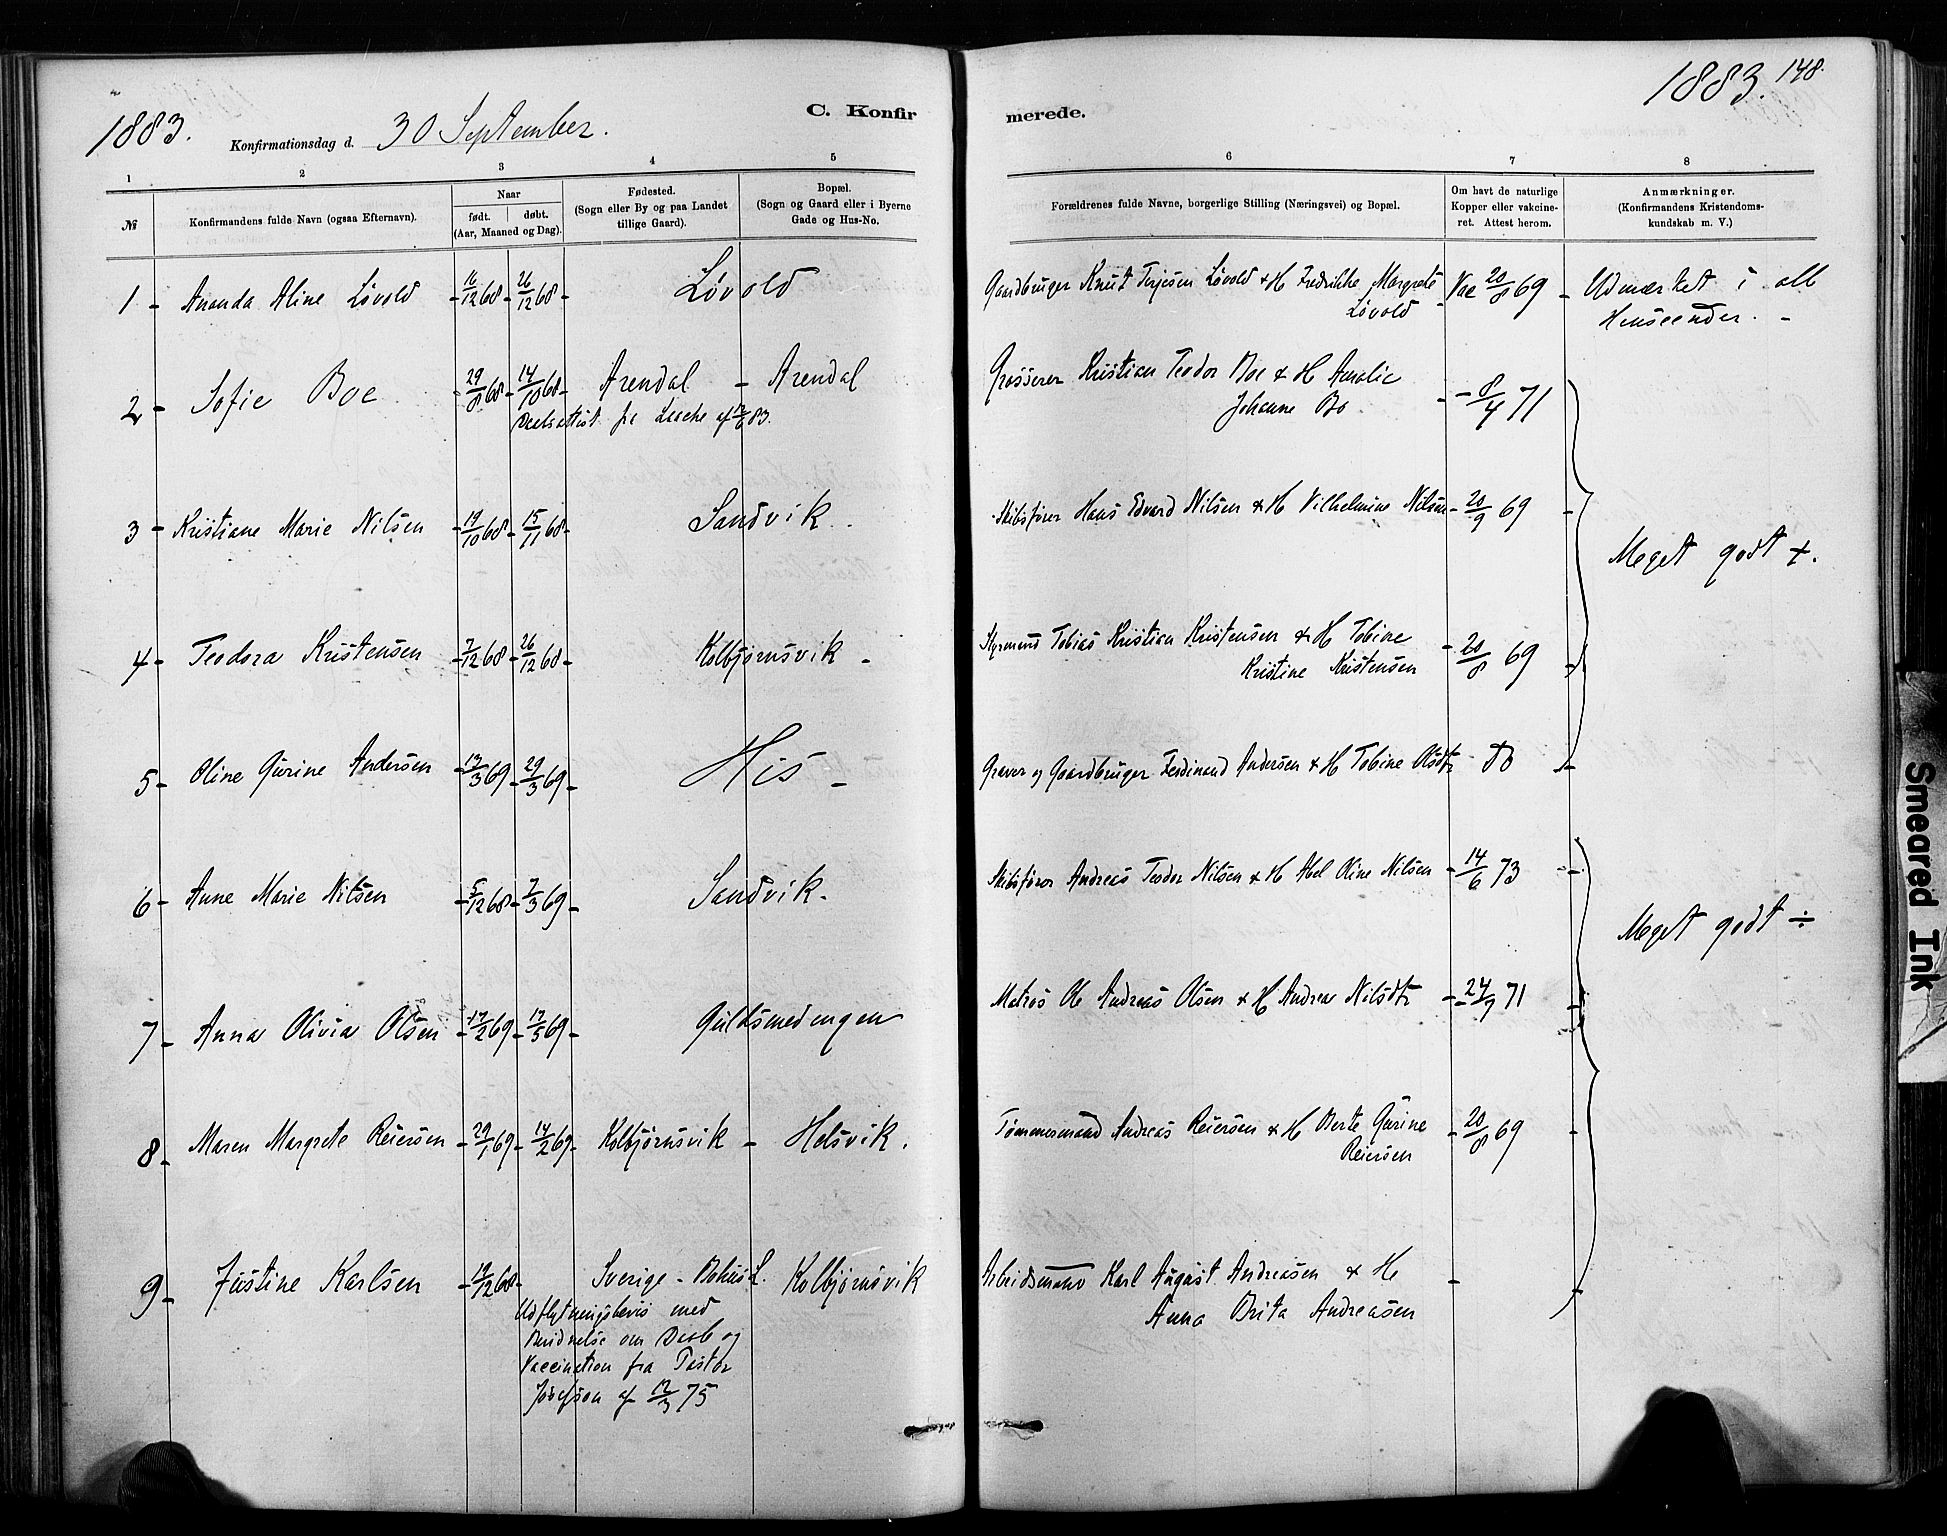 1883.
Konfirmationsdag d. 30 September.
C. Konfir
merede.
1883. 148.
1 2 3 4 5 6 7 8
№
Konfirmandens fulde Navn (ogsaa Efternavn).
Naar
født. døbt.
(Aar, Maaned og Dag).
Fødested.
(Sogn eller By og paa Landet
tillige Gaard).
Bopæl.
(Sogn og Gaard eller i Byerne
Gade og Hus-No.
Forældrenes fulde Navne, borgerlige Stilling (Næringsvei) og Bopæl.
Om havt de naturlige
Kopper eller vakcine-
ret. Attest herom.
Anmærkninger.
(Konfirmandens Kristendoms-
kundskab m. V.)
1 - Ananda Aline Løvold - 16/12 68 - 26/12 68 - Løvold Gaardbruger Knut Terjesen Løvold & H Fredrikke Margrete Vac 20/8 69 - Udmærket i all
Løvold - Henseender. -
2 - Sofie Boe - 29/8 68 - 14/10 68 - Arendal - Arendal Grosserer Kristian Teodor Boe & H Amalie
Johanne Bo - 8/4 71
fra Lasche af 83.
3 - Kristiane Marie Nilsen - 19/10 68 - 15/11 68 - Sandvik. Skibsfører Hans Edvard Nilsen & H Vilhelmine Nilsen - 20/9 69 -
Meget godt +.
4 - Teodora Kristensen - 7/12 68 - 26/12 68 - Kolbjørnsvik - Styrmand Tobias Kristian Kristensen & H Tobine
Kristine Kristensen - 20/8 69 -
5 - Oline Gurine Andersen - 13/3 69 - 29/3 69 - His - Graver og Gaardbruger Ferdinand Andersen & H Tobine Olsdtr - do -
6 - Anne Marie Nilsen - 5/12 68 - 7/3 69 - Sandvik. Skibsfører Andreas Teodor Nilsen & H Abel Oline Nilsen - 14/6 73 -
Meget godt ÷
7 - Anna Olivia Olsen - 17/2 69 - 17/5 69 - Guldsmedengen Matros Ole Andreas Olsen & H Andrea Nilsdtr - 24/9 71 -
8 - Maren Margrete Reiersen - 29/1 69 - 14/2 69 - Kolbjørnsvik - Helsvik. Tømmermand Andreas Reiersen & H Berte Gurine
Reiersen - 20/8 69 -
9 - Justine Karlsen - 19/12 68 - Sverige - Bohus L. Kolbjørnsvik Arbeidsmand Karl August Andreasen & H -
Anna Brita Andreasen
Udflytningsbevis med
om Daab og
Vaccination fra Pastor
Josefson af 12/3 75
Smeared Ink